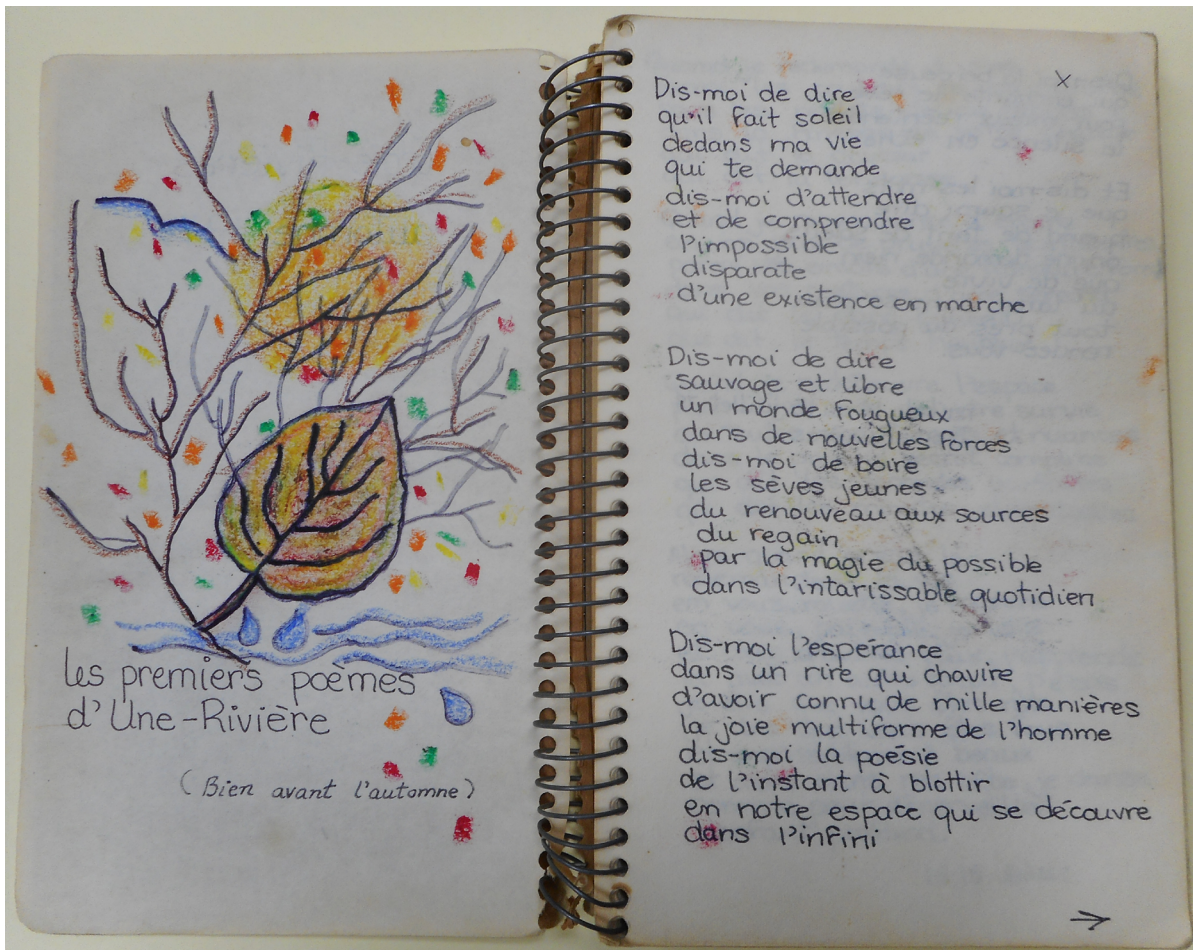 les premiers poèmes
d'Une-Rivière
(Bien avant l'automne)
x
Dis-moi de dire
qu'il fait soleil
dedans ma vie
qui te demande
dis-moi d'attendre
et de comprendre
l'impossible
disparate
d'une existence en marche
Dis-moi de dire
sauvage et libre
un monde fougueux
dans de nouvelles forces
dis-moi de boire
les sèves jeunes
du renouveau aux sources
du regain
par la magie du possible
dans l'intarissable quotidien
Dis-moi l'espérance
dans un rire qui chavire
d'avoir connu de mille manières
la joie multiforme de l'homme
dis-moi la poésie
de l'instant à blottir
en notre espace qui se découvre
dans l'infini
→